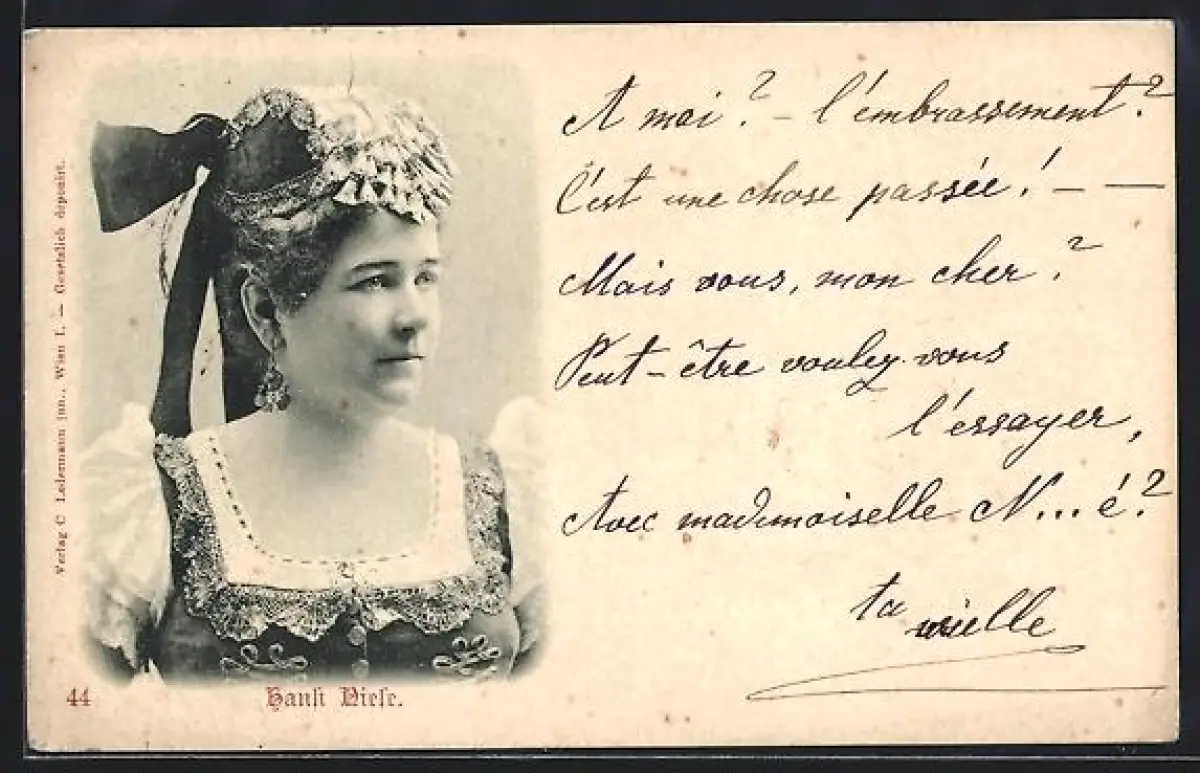 A moi? - l'embrassement?
C'est une chose passée! - —
Mais vous, mon cher?
Peut-être voulez-vous
l'essayer,
Avec mademoiselle N...é?
ta vieille
Verlag C Ledermann jun., Wien I. — Gesetzlich deponirt.
44
Hansi Niese.